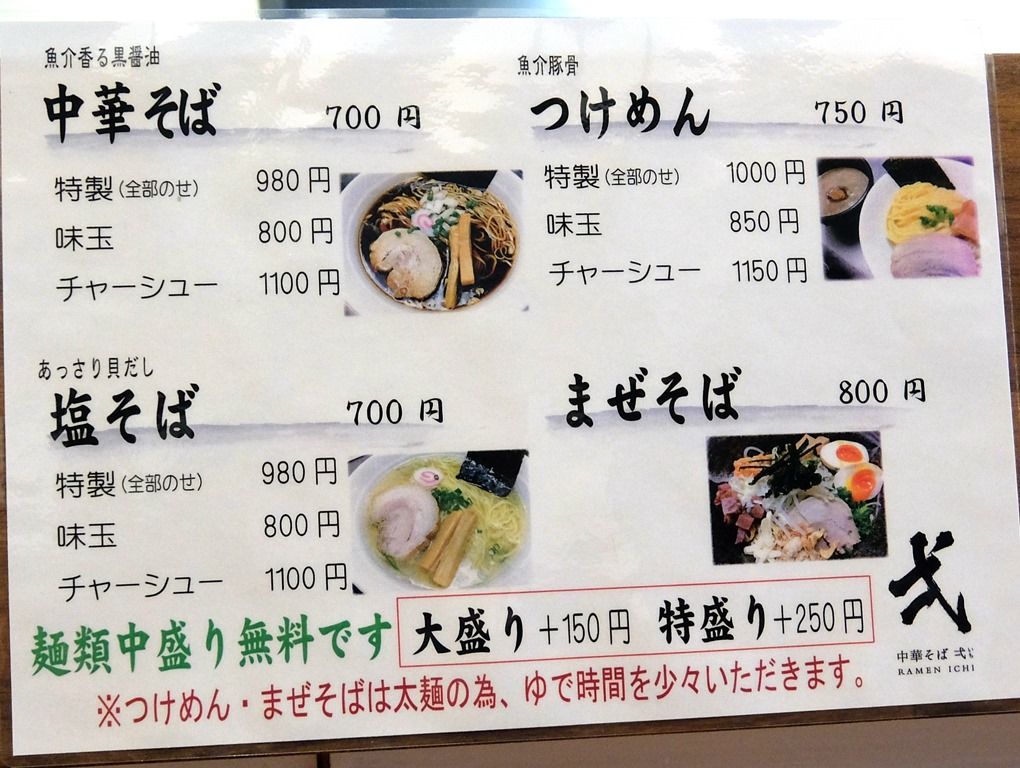 魚介香る黒醤油
中華そば 700 円
特製(全部のせ) 980 円
味玉 800 円
チャーシュー 1100 円
魚介豚骨
つけめん 750 円
特製(全部のせ) 1000 円
味玉 850 円
チャーシュー 1150 円
あっさり貝だし
塩そば 700 円
特製(全部のせ) 980 円
味玉 800 円
チャーシュー 1100 円
まぜそば 800 円
麺類中盛り無料です
大盛り+150円 特盛り+250円
※つけめん・まぜそばは太麺の為、ゆで時間を少々いただきます。
弍
中華そば 弍
RAMEN ICHI